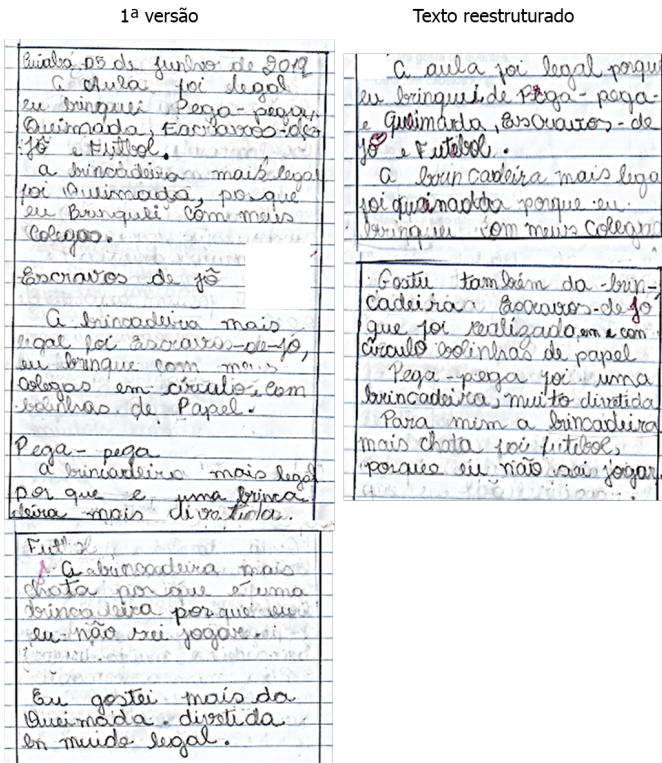 1ª versão
Cuiabá 05 de Junho de 2012
A aula foi legal
eu brinquei Pega-pega,
Queimada, Escravos-de
jô e Futbol.
a brincadeira mais legal
foi Queimada, porque
eu Brinquei com meus
colegas.
Escravos de jô
A brincadeira mais
legal foi Escravos-de-jô,
eu brinque com meus
colegas em círculo, com
bolinhas de Papel.
Pega-pega
a brincadeira mais legal
por que e uma brinca
deira mais divertida.
A brincadeira mais
chata por que é uma
brincadeira porque eu
eu não sei jogar.
Eu gostei mais da
Queimada divetida
en muido legal.
Texto reestruturado
A aula foi legal porque
eu brinquei de Pega-pega-
e Queimada, Escravos-de
jô e Futebol.
A brincadeira mais lega
foi queimada porque eu
brinquei com meus colegas
Gostu também da brin-
cadeira Escravos-de jo
que foi realizada em e com
círculo bolinhas de papel
Pega-pega foi uma
brincadeira, muito divetida
Para mim a brincadeira
mais chata foi futebol,
porque eu não sei jogar.